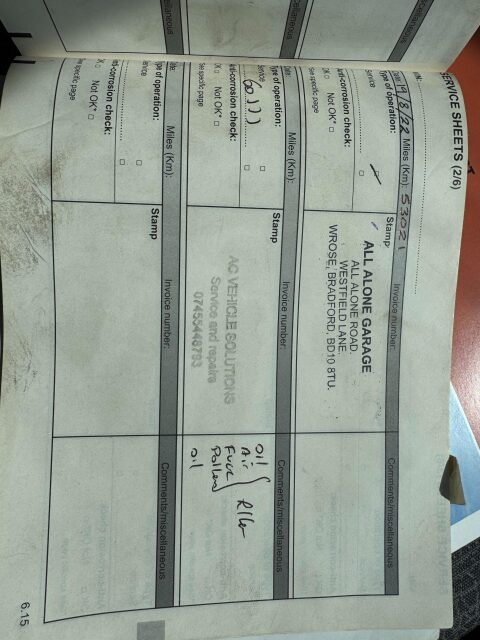 SERVICE SHEETS (2/6)
VIN:
Date: 19/8/22 Miles (Km): 53021 Invoice number: Comments/miscellaneous
Type of operation: Stamp
Service
Anti-corrosion check:
OK Not OK*
*See specific page
ALL ALONE GARAGE
ALL ALONE ROAD.
WESTFIELD LANE.
WROSE, BRADFORD, BD10 8TU.
Date: Miles (Km): Invoice number: Comments/miscellaneous
Type of operation: Stamp
Service
Anti-corrosion check:
OK Not OK*
*See specific page
AC VEHICLE SOLUTIONS
Service and repairs
07455448793
oil
Air
Fuel
Pollen
oil
Date: Miles (Km): Invoice number: Comments/miscellaneous
Type of operation: Stamp
Service
Anti-corrosion check:
OK Not OK*
*See specific page
6.15